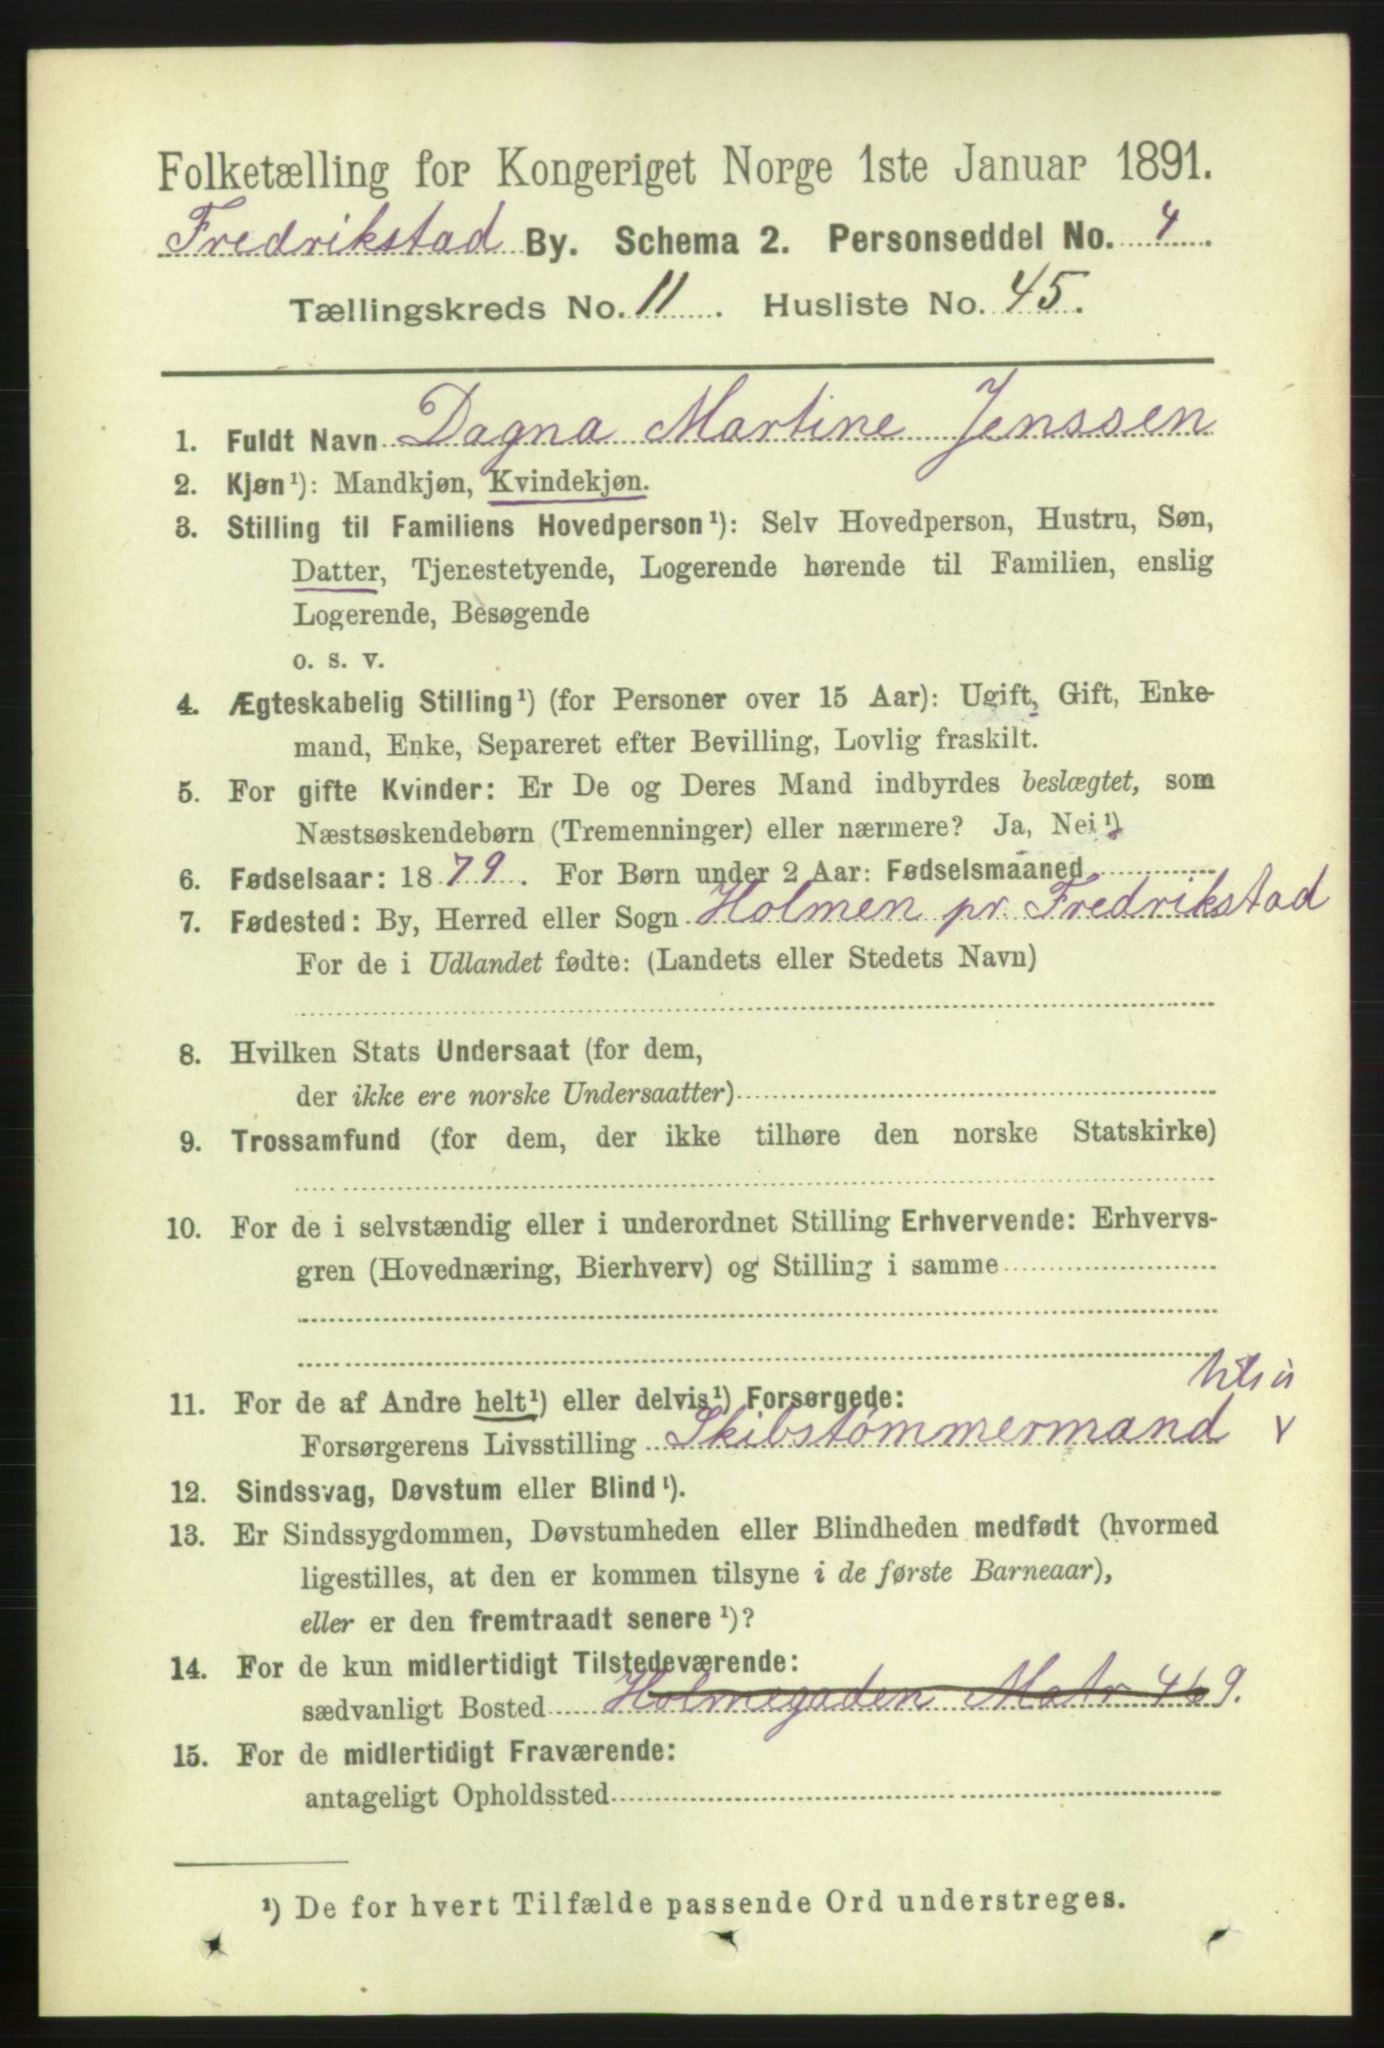 Folketælling for Kongeriget Norge 1ste Januar 1891.
Fredrikstad By. Schema 2. Personseddel No. 4.
Tællingskreds No. 11. Husliste No. 45.
1. Fuldt Navn Dagna Martine Jenssen
2. Kjøn¹): Mandkjøn, Kvindekjøn.
3. Stilling til Familiens Hovedperson¹): Selv Hovedperson, Hustru, Søn,
Datter, Tjenestetyende, Logerende hørende til Familien, enslig
Logerende, Besøgende
o. s. v.
4. Ægteskabelig Stilling¹) (for Personer over 15 Aar): Ugift, Gift, Enke-
mand, Enke, Separeret efter Bevilling, Lovlig fraskilt.
5. For gifte Kvinder: Er De og Deres Mand indbyrdes beslægtet, som
Næstsøskendebørn (Tremenninger) eller nærmere? Ja, Nei¹)
6. Fødselsaar: 1879. For Børn under 2 Aar: Fødselsmaaned
7. Fødested: By, Herred eller Sogn Holmen pr. Fredrikstad
For de i Udlandet fødte: (Landets eller Stedets Navn)
8. Hvilken Stats Undersaat (for dem,
der ikke ere norske Undersaatter)
9. Trossamfund (for dem, der ikke tilhøre den norske Statskirke)
10. For de i selvstændig eller i underordnet Stilling Erhvervende: Erhvervs-
gren (Hovednæring, Bierhverv) og Stilling i samme
11. For de af Andre helt¹) eller delvis¹) Forsørgede:
Forsørgerens Livsstilling Skibstømmermand
12. Sindssvag, Døvstum eller Blind¹).
13. Er Sindssygdommen, Døvstumheden eller Blindheden medfødt (hvormed
ligestilles, at den er kommen tilsyne i de første Barneaar),
eller er den fremtraadt senere¹)?
14. For de kun midlertidigt Tilstedeværende:
sædvanligt Bosted Holmegaden Matr 469.
15. For de midlertidigt Fraværende:
antageligt Opholdssted
¹) De for hvert Tilfælde passende Ord understreges.